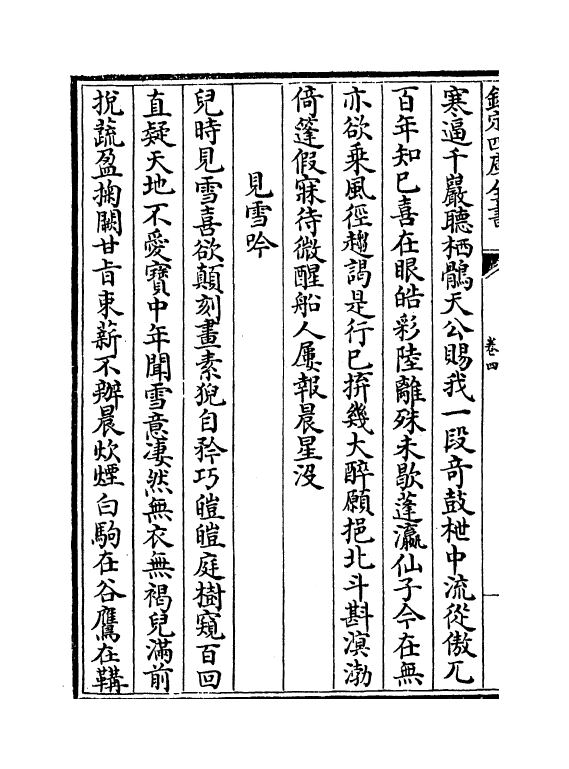 欽定四庫全書
卷四
寒逼千巖聽栖鶻天公賜我一段奇鼓枻中流從傲兀
百年知已喜在眼皓彩陸離殊未歇蓬瀛仙子今在無
亦欲乘風徑趨謁是行已拚幾大醉願挹北斗斟溟渤
倚篷假寐待微醒船人屢報晨星没
見雪吟
兒時見雪喜欲顛刻畫素猊自矜巧皚皚庭樹窺百回
直疑天地不愛寶中年聞雪意凄然無衣無褐兒滿前
挩蔬盈掬闕甘旨束薪不辦晨炊煙白駒在谷鷹在鞲